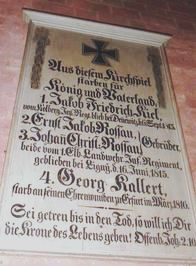 Aus diesem Kirchspiel
starben für
König und Vaterland,
1. Jakob Friedrich Kiel,
vom Inf. Regt. blieb bei Dennewitz, d. 6. Sept. 13.
2. Ernst Jakob Rossau,
Gebrüder,
3. Johan Christ. Rossau
beide vom 1. Elb. Landwehr Inf. Regiment,
geblieben bei Ligny, d. 16. Juni, 1815.
4. Georg Kallert,
starb an seinen Ehrenwunden zu Erfurt im März, 1816.
Sei getreu bis in den Tod, so will ich Dir
die Krone des Lebens geben! Offenb. Joh. 2.10